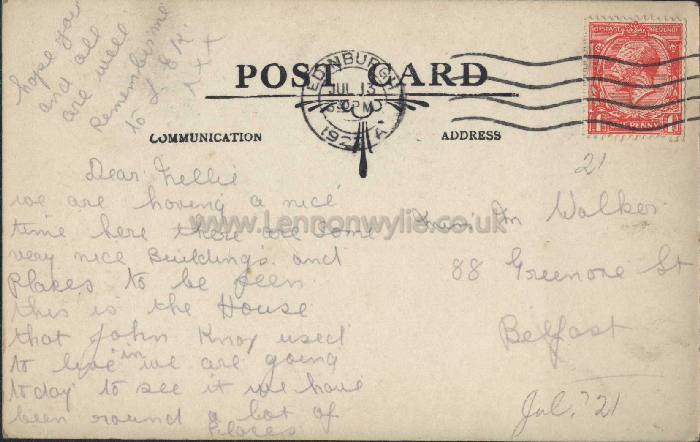 hope you
and all
are well
remember me
to L & K
xxx
POST CARD
EDINBURGH
JUL 13
PM
192
A
ONE PENNY
COMMUNICATION
ADDRESS
Dear Nellie
we are having a nice
time here there are some
very nice Buildings and
Places to be seen
this is the House
that John Knox used
to live in we are going
today to see it we have
been round a lot of
Places
www.Lennonwylie.co.uk
21
Walker
88 Greenore St
Belfast
Jul. 21